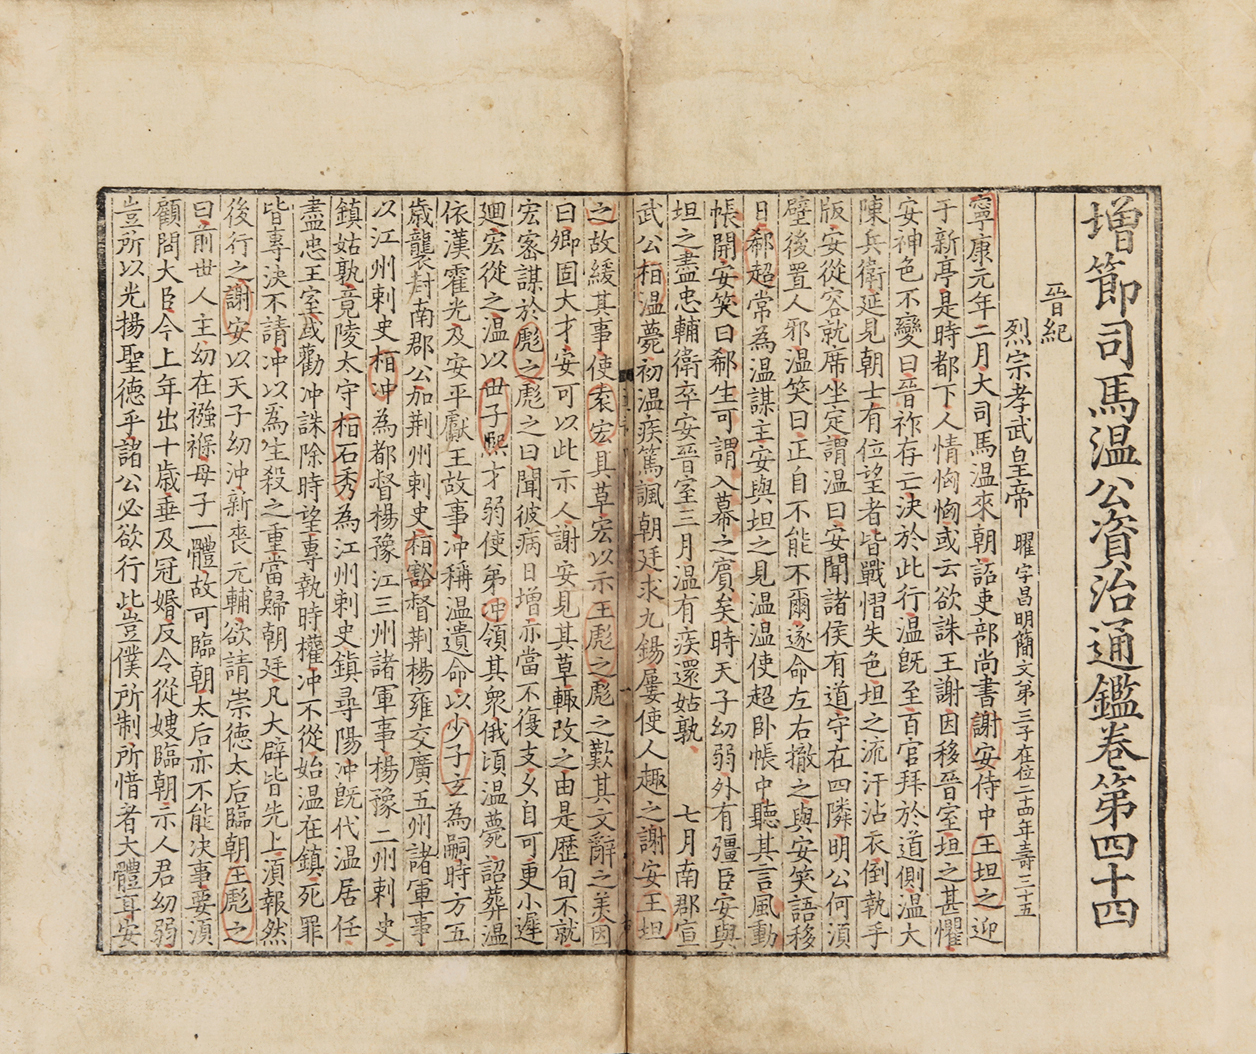 增節司馬温公資治通鑑卷第四十四
晉紀
烈宗孝武皇帝 曜字昌明簡文第三子在位二十四年壽三十五
寧康元年二月大司馬温來朝詔吏部尚書謝安侍中王坦之迎
于新亭是時都下人情恟恟或云欲誅王謝因移晉室坦之甚懼
安神色不變曰晉祚存亡決於此行温旣至百官拜於道側温大
陳兵衛延見朝士有位望者皆戰慴失色坦之流汗沾衣倒執手
版安從容就席坐定謂温曰安聞諸侯有道守在四隣明公何湏
壁後置人邪温笑曰正自不能不爾遂命左右撤之與安笑語移
日郗超常為温謀主安與坦之見温温使超卧帳中聽其言風動
帳開安笑曰郗生可謂入幕之賓矣時天子幼弱外有彊臣安與
坦之盡忠輔衛卒安晉室三月温有疾還姑孰 七月南郡宣
武公桓温薨初温疾篤諷朝廷求九錫屢使人趣之謝安王坦
之故緩其事使袁宏具草宏以示王彪之彪之歎其文辭之美因
曰卿固大才安可以此示人謝安見其草輙改之由是歴旬不就
宏宻謀於彪之彪之曰聞彼病日增亦當不復支乆自可更小遲
廻宏從之温以世子熙才弱使弟冲領其衆俄頃温薨詔葬温
依漢霍光及安平獻王故事冲稱温遺命以少子玄為嗣時方五
歳襲封南郡公加荆州刺史桓豁督荆楊雍交廣五州諸軍事
以江州刺史桓冲為都督楊豫江三州諸軍事楊豫二州刺史
鎮姑孰竟陵太守桓石秀為江州刺史鎮尋陽冲旣代温居任
盡忠王室或勸冲誅除時望專執時權冲不從始温在鎮死罪
皆專決不請冲以為生殺之重當歸朝廷凡大辟皆先上湏報然
後行之謝安以天子幼冲新喪元輔欲請崇德太后臨朝王彪之
曰前世人主幼在襁褓母子一體故可臨朝太后亦不能決事要湏
顧問大臣今上年出十歳垂及冠婚反令從嫂臨朝示人君幼弱
豈所以光揚聖德乎諸公必欲行此豈僕所制所惜者大體耳安